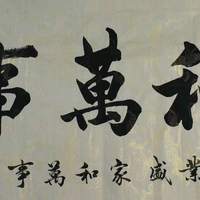 和萬事
業盛家和萬事